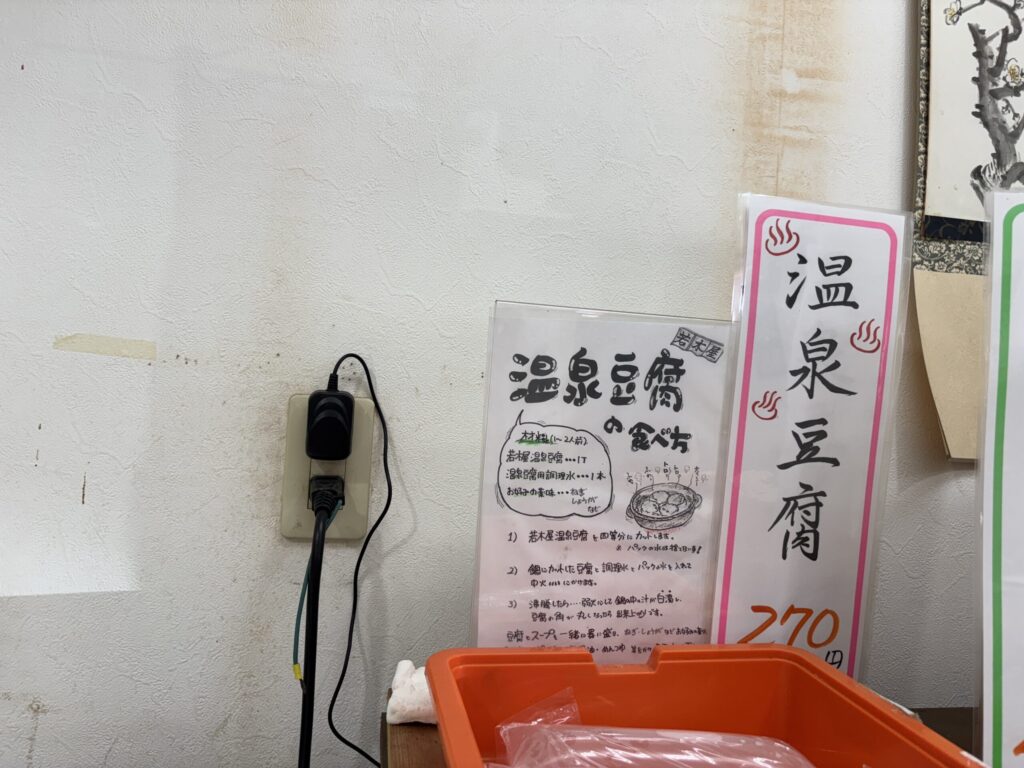 若木屋
温泉豆腐
の食べ方
材料(1〜2人前)
若木屋温泉豆腐・・・1丁
温泉豆腐用調理水・・・1本
お好みの薬味・・・ねぎ
しょうが
など
1) 若木屋温泉豆腐を四等分にカットします。
2) 鍋にカットした豆腐と調理水とパックの水を入れて
中火にかけます。
3) 沸騰したら・・・弱火にして鍋の中の汁が白濁し、
豆腐の角が丸くなったら出来上がりです。
豆腐とスープを一緒に器に盛り、ねぎ・しょうがなどお好みの
温泉豆腐
270
円